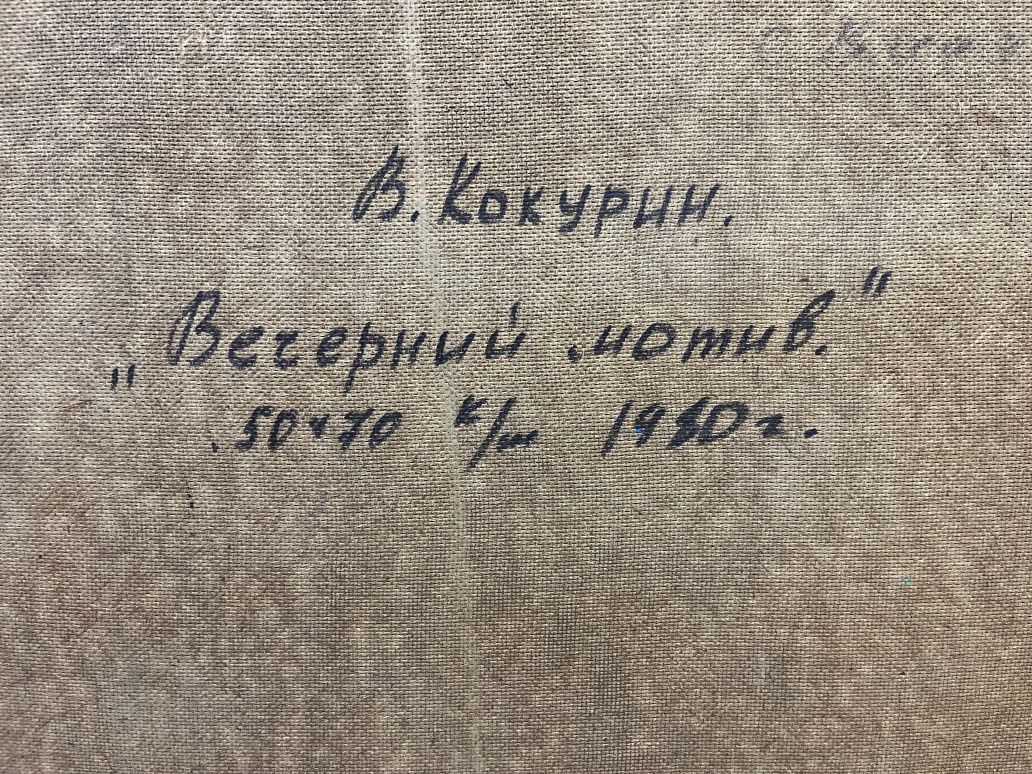 В. Кокурин.
„Вечерний мотив."
50×70 к/м